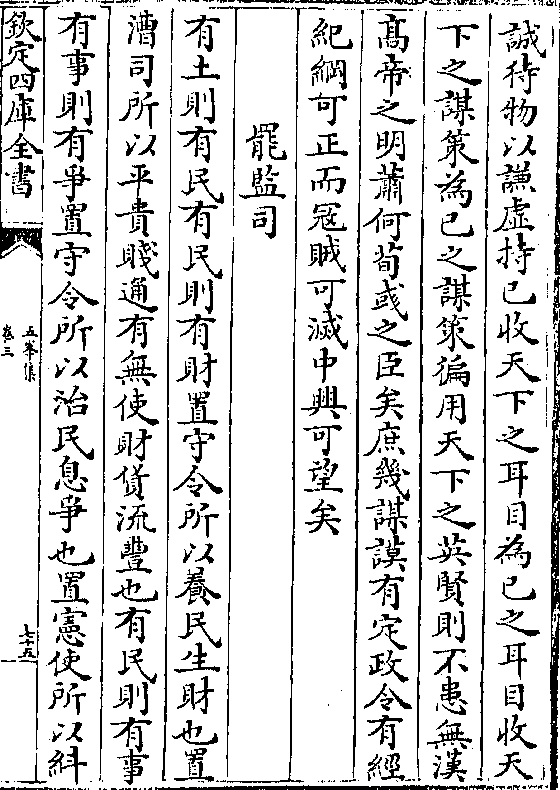 誠待物以謙虛持已收天下之耳目為已之耳目收天
下之謀策為已之謀策徧用天下之英賢則不患無漢
髙帝之明蕭何荀彧之臣矣庶幾謀謨有定政令有經
紀綱可正而冦賊可滅中興可望矣
罷監司
有土則有民有民則有財置守令所以養民生財也置
漕司所以平貴賤通有無使財貨流豐也有民則有事
有事則有爭置守令所以治民息爭也置憲使所以糾
欽定四庫全書
五峯集
卷三
七五